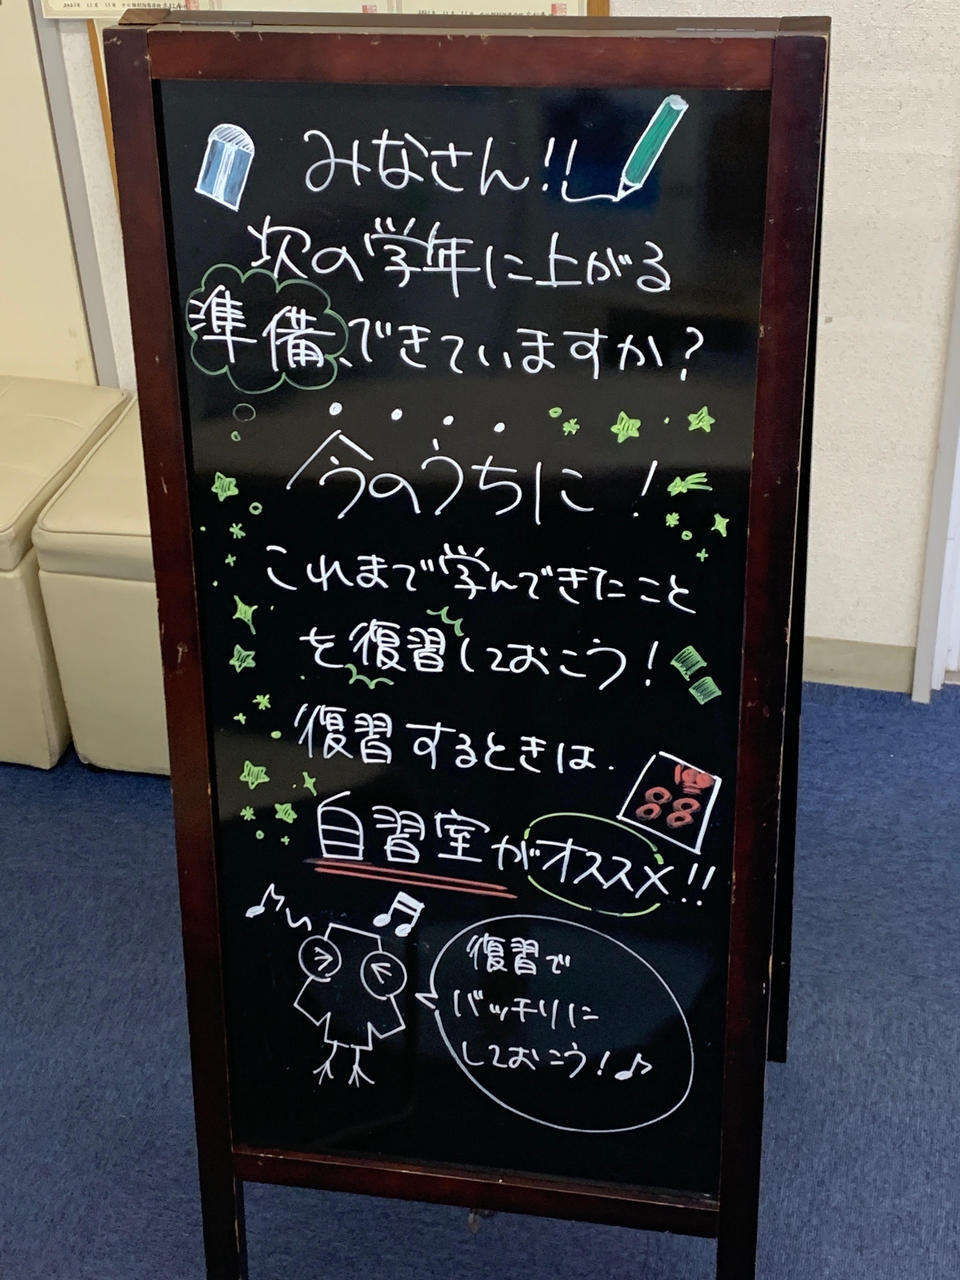 みなさん!!
次の学年に上がる
準備、できていますか?
今のうちに!
これまで学んできたこと
を復習しておこう!
復習するときは、
100
88
自習室がオススメ!!
復習で
バッチリに
しておこう!♪